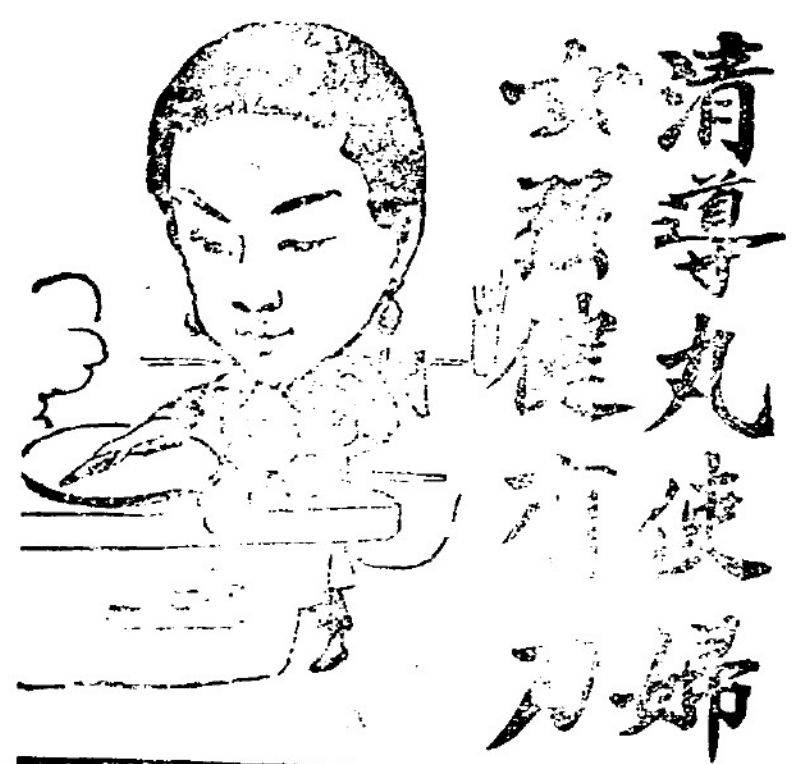 清導丸使婦
女若健有力